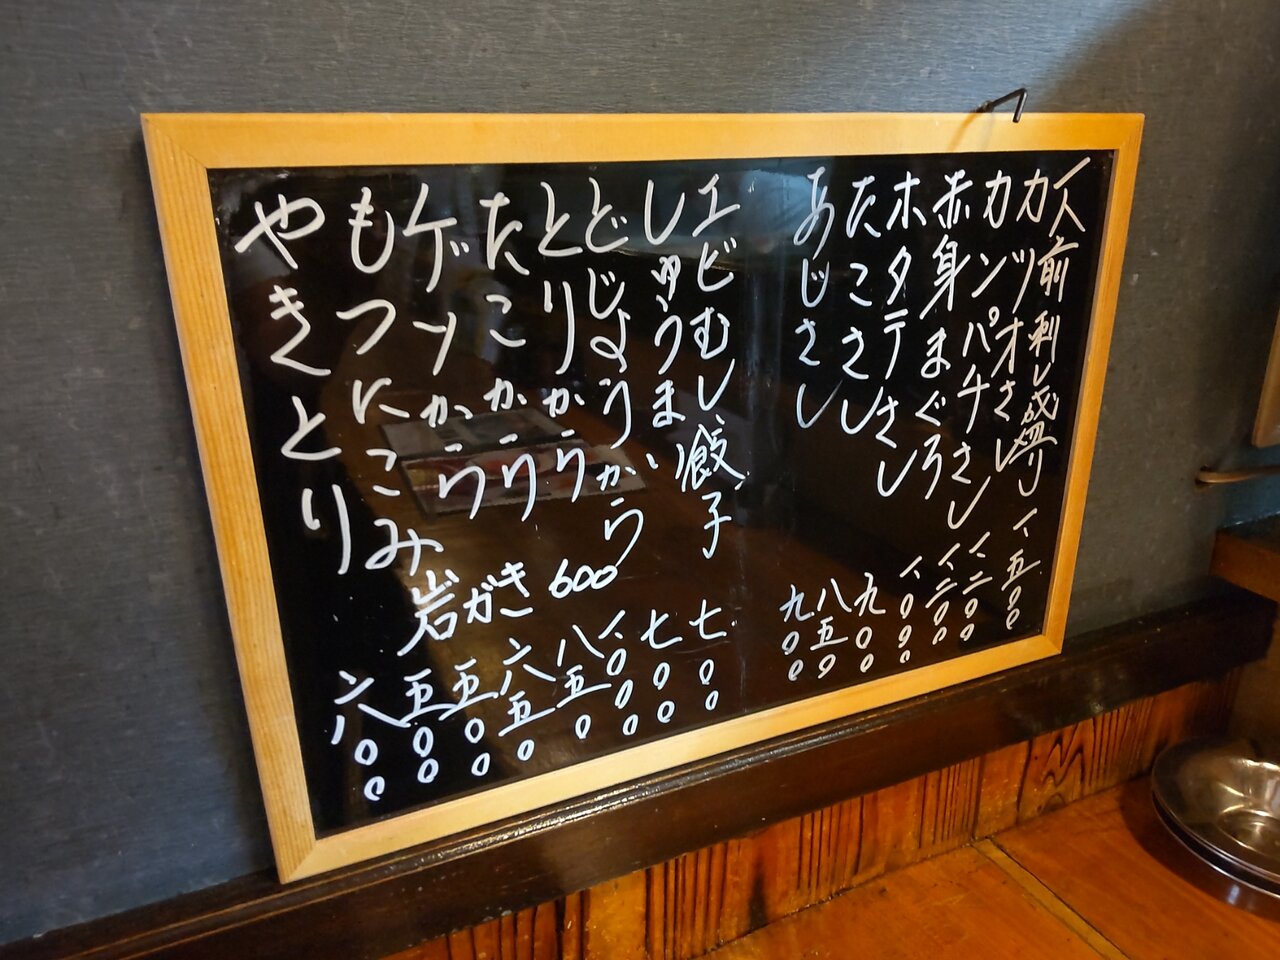 一人前刺し盛り 一、五〇〇
カツオさし 一、二〇〇
カンパチさし 一、二〇〇
赤身まぐろ 一、〇〇〇
ホタテさし 九〇〇
たこさし 八五〇
あじさし 九〇〇
エビむし餃子 七〇〇
しゅうまい 七〇〇
どじょうから 一、〇〇〇
とりから 八五〇
たこから 六五〇
ゲソから 五〇〇
もつにこみ 五〇〇
やきとり 六〇〇
岩がき 600